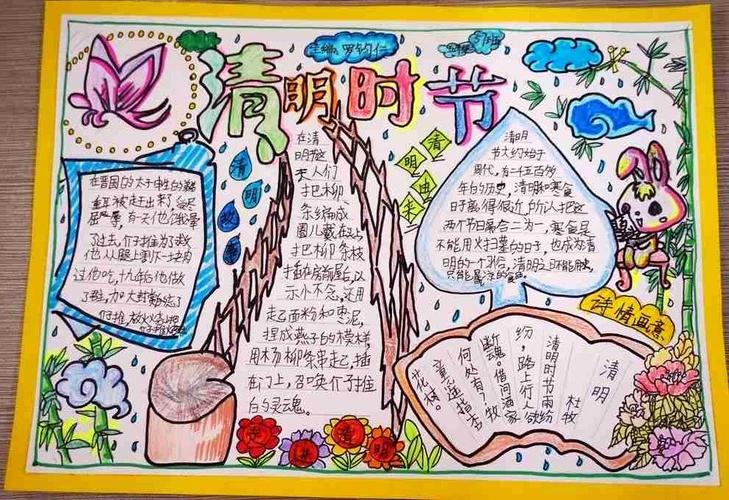 主编:罗钧仁
清明时节
清明
故事
在晋国的太子申生的
重耳被走出来
了过去,介子推为了救
他从腿上割下一块肉
过他吃,十九年后他做
在清
明节这
天人们
把柳
条编成
圈儿戴在头上
把柳条枝
插在房前屋后,以
示小不念,还用
起面粉和枣泥,
捏成燕子的模样,
用杨柳条串起,插
在门上,召英介子推
后的灵魂。
清明由来
清明
节大约始于
周代,有二千五百多
年的历史,清明和寒食
日子离得很近,所以人把这
两个节日融合二为一,寒食是
不能用火扫墓的日子,也成为清
明的一个习俗,清明之日不能动火,
只能是凉的食品。
诗情画意
清明
杜牧
清明时节雨纷
纷,路上行人欲
断魂。借问酒家
何处有?牧
童遥指杏
花村。
清明